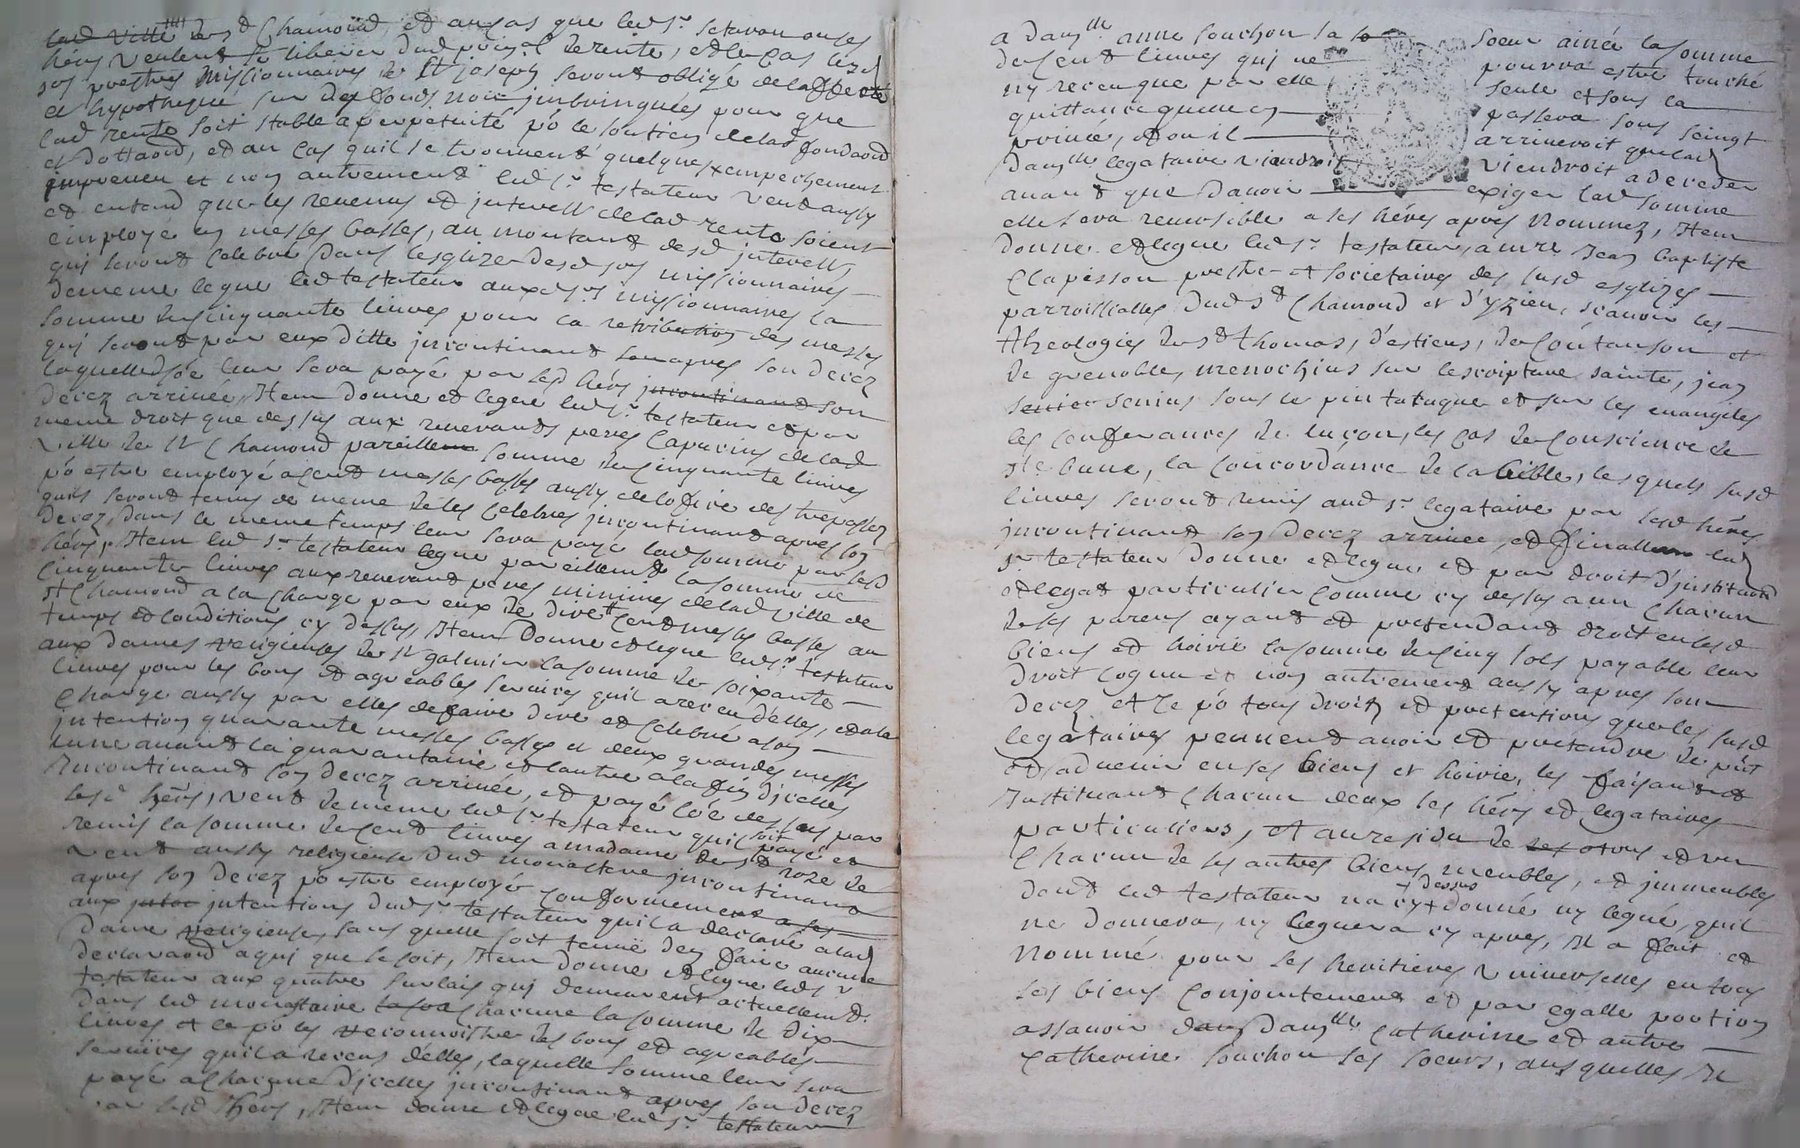 lad ville de St Chamond, et au cas que led sr. Setavon ou ses
hérs veulent se liberer dud prin.l de rente, esd. cas lesd
srs prestres Missionnaires de St joseph seront obligé de l'affecter
et hypothequer sur des fonds non jmbringués pour que
lad rente soit stable a perpetuité pr le soutien de lad fondaon
et dottaon, et au cas quil se trouvent quelques empechement
jmpreveu et non autrement led sr. testateur veut aussy
et entend que les revenus et jnterest de lad rente soient
employé en messes basses, au montant desd jnterests
qui seront celebré dans lesglize desd srs missionnaires
de meme legue led testateur auxd srs missionnaires la
somme de cinquante livres pour la retribution des messes
qui seront par eux ditte jncontinant son apres son decez
laquelle so.e leur sera payé par lesd hérs jncontinant son
decez arrivée, Item donne et legue led sr. testateur et par
meme droit que dessus aux reverands peres Capucins de lad
ville de St Chamond pareillem somme de cinquante livres
pr estre employé a cent messes basses aussy de lofice des trepassez
quils seront tenus de meme de les celebrer jncontinant apres son
decez, dans le meme temps leur sera payé lad somme par lesd
hérs, Item led sr. testateur legue pareillement la somme de
cinquante livres aux reverand peres minimes de lad ville de
St Chamond a la charge par eux de dire cent messes basses au
temps et conditions cy dessus, Item donne et legue led sr. testateur
aux dames religieuses de St galmier la somme de soixante
livres pour les bons et agreables services quil a receu d'elles, et a la
charge aussy par elles de faire dire et celebré a son
jntention quarante messes basses et deux grandes messes
lune avant la quarantaine et lautre a la fin d'jcelles
jncontinant son decez arrivée, et payé co.e dessus par
lesd hérs, veut de meme led sr. testateur quil soit payé et
remis la somme de cent livres a madame de ste roze de
vent aussy religieuse dud monastere jncontinant
apres son decez pr estre employé conformement a ses
aux jntentions dud sr. testateur quil a declaré a lad
dame religieuse, sans quelle soit tenuë den faire aucune
declaraon a qui que se soit, Item donne et legue led sr
testateur aux quatre seurs lais qui demeurent actuellement
dans led monastaire chacune la somme de dix
livres et ce pr les reconnoistre des bons et agreables
services quil a receus d'elles, laquelle somme leur sera
payé a chacune d'jcelles jncontinant apres son decez
par lesd hérs, Item donne et legue led sr. testateur
a damlle anne souchon sa soeur ainée la somme
de cent livres qui ne pourra estre touché
ny receu que par elle seule et sous la
quittance quelle en passera sous seingt
privé, et ou il arriveroit que lad
damlle legataire viendroit viendroit a deceder
avant que davoir exiger lad somme
elle sera reversible a ses hérs apres nommez, Item
donne et legue led sr. testateur, a mre Jean baptiste
Clapisson prestre et societaires des susd esglizes
parroissialles dud St Chamond et d'yzieu, scavoir les
theologies de St thomas, d'estiens, de coutanson et
de grenobles, menochius sur lescripture sainte, jean
senier senius sous le pintatuque et sur les evangiles
les conferances de luçon, les cas de conscience de
ste bauve, la concordance de la bible, les quels susd
livres seront remis aud sr. legataire par lesd hérs
jncontinant son decez arrivée, et finallem led
sr testateur donne et legue, et par droit d'jnstituon
et legat particulier comme cy dessus a un chacun
de ses parens ayant et pretendant droit en sesd
biens et hoirie la somme de cinq sols payable leur
droit cognu et non autrement aussy apres son
decez et ce pr tous droits et pretentions que les susd
legataires peuvent avoir et pretendre de pnt
et a advenir en ses biens et hoirie, les faisant et
Jnstituant chacun deux ses hérs et legataires
particuliers, Et au residu de ses tous et un
chacun de ses autres biens meubles, et jmmeubles
+ dessus
dont led testateur na cy + donné ny legué, quil
ne donnera, ny leguera cy apres, Il a fait et
nommé pour ses heritieres universelles en tous
ses biens conjointement et par egalle portion
assavoir damlle catherine et autre
catherine souchon ses soeurs, ausquelles Il